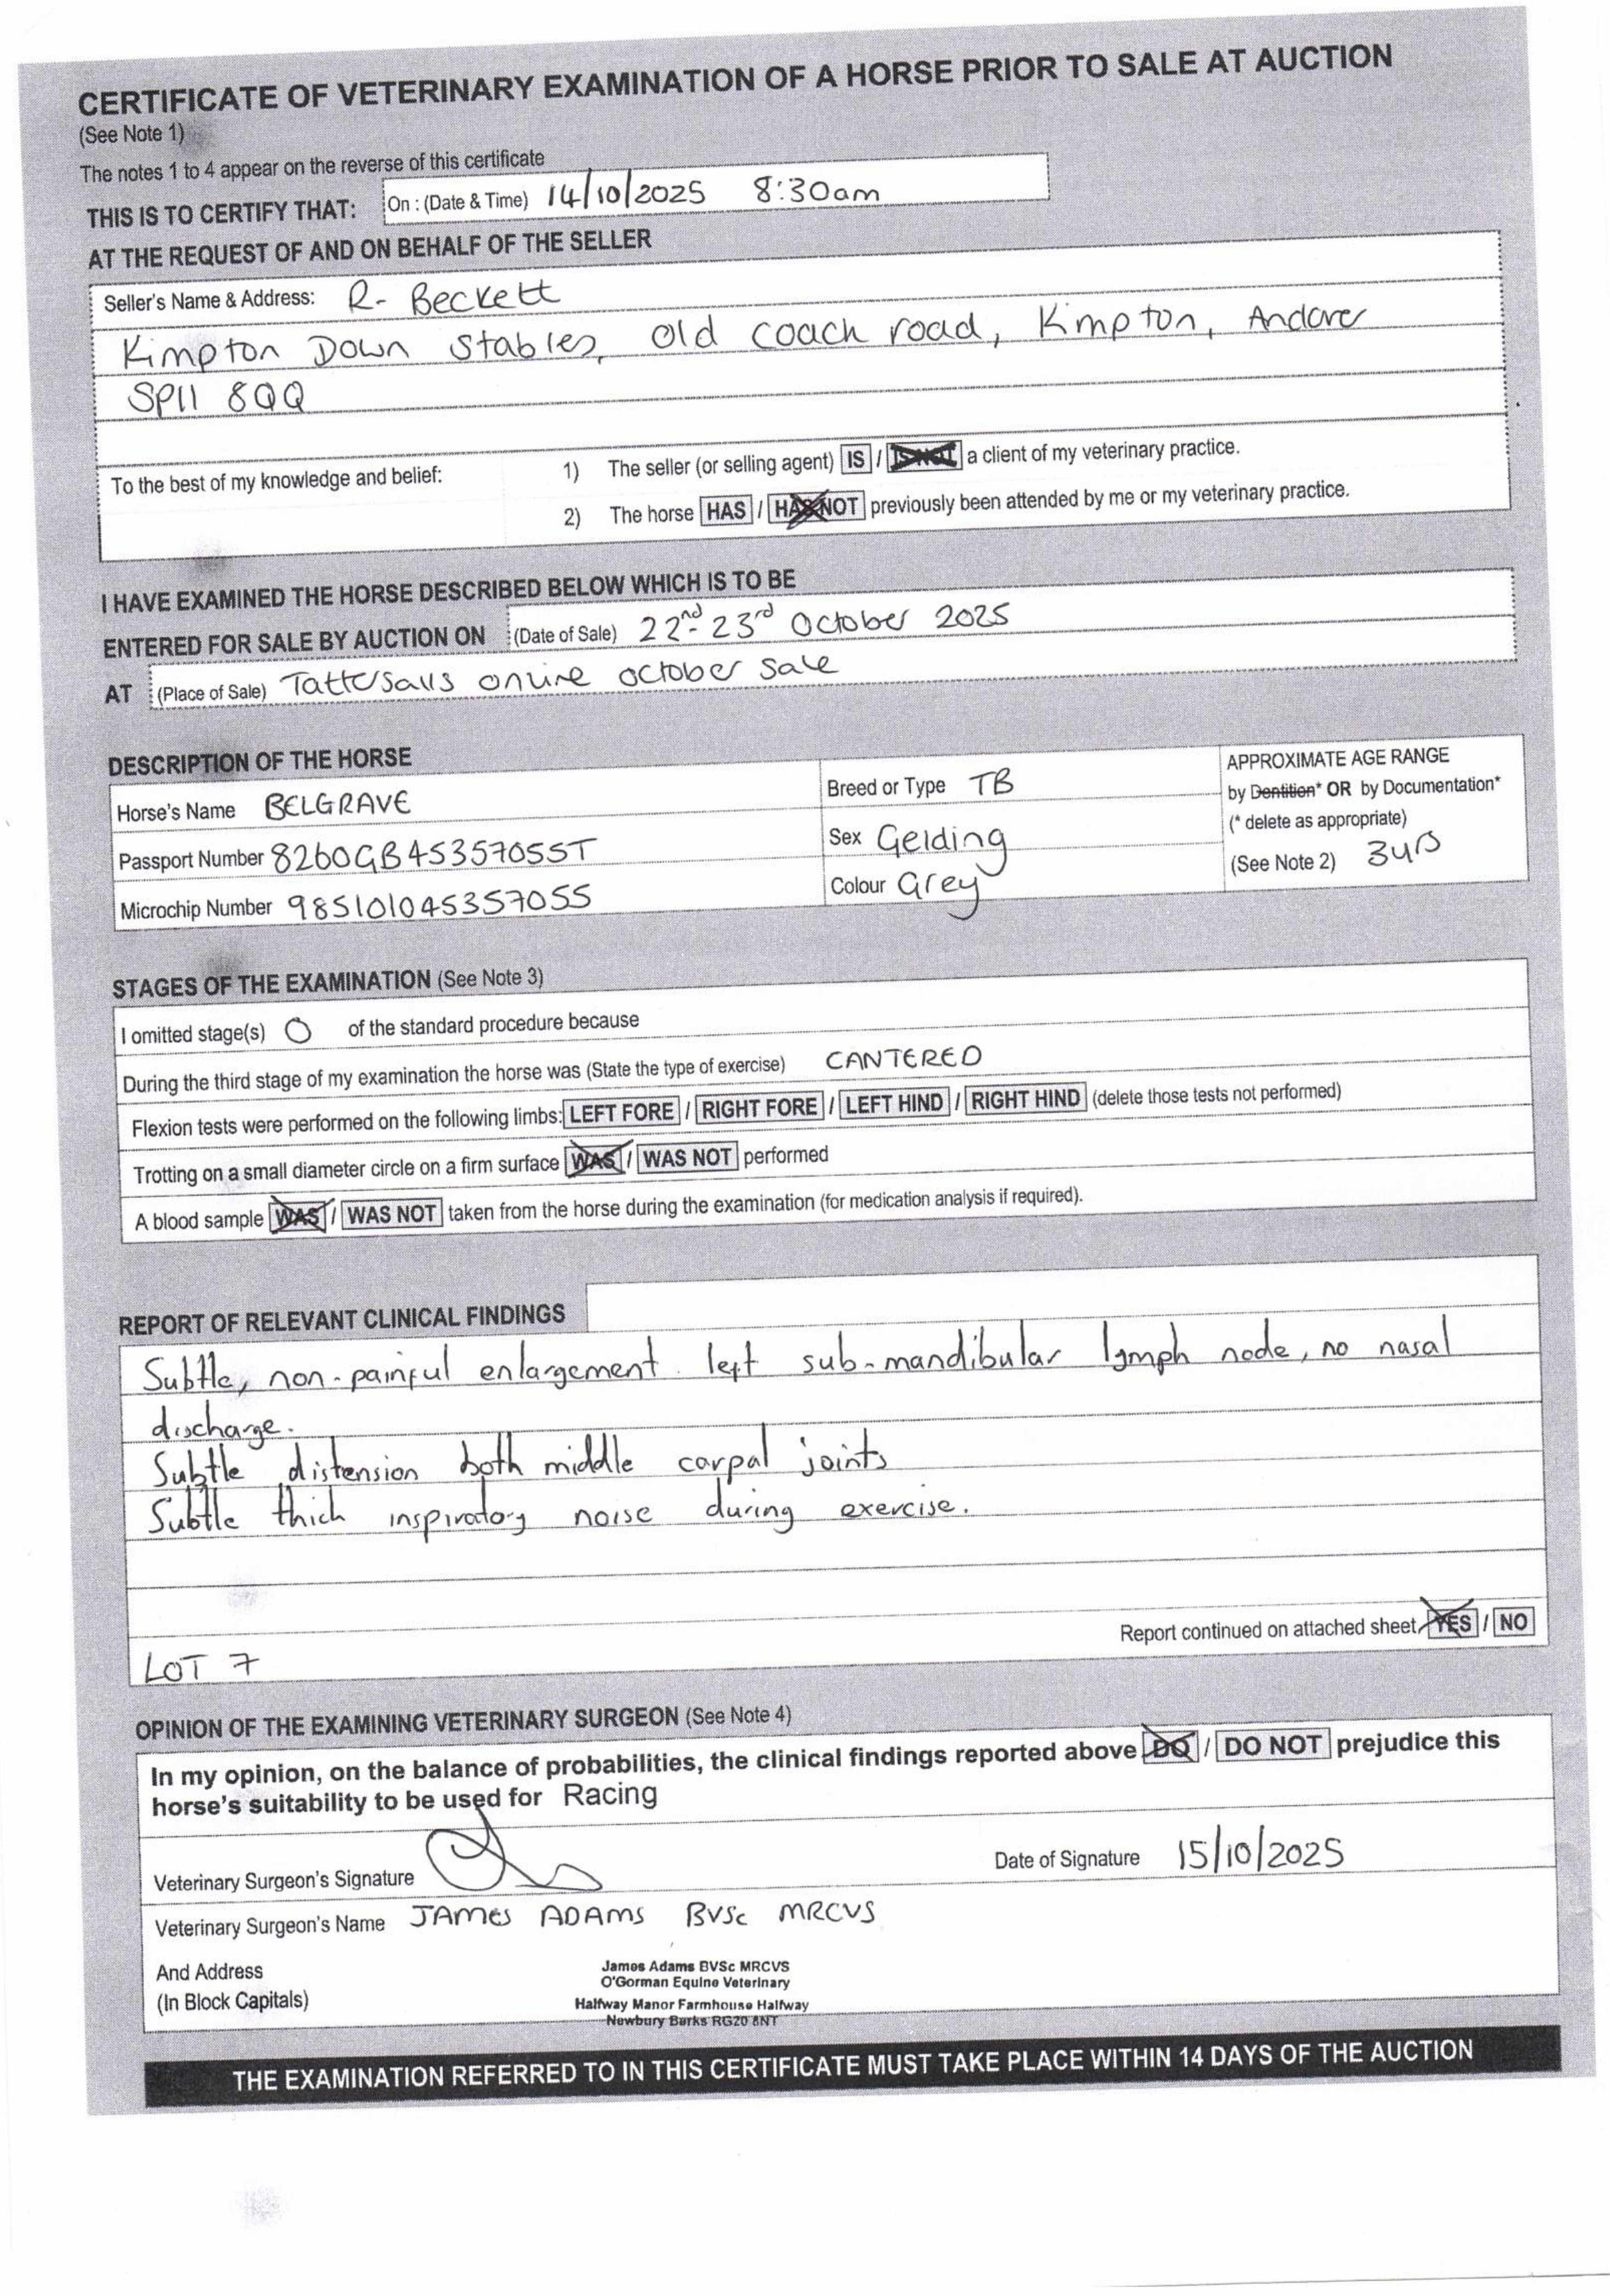 CERTIFICATE OF VETERINARY EXAMINATION OF A HORSE PRIOR TO SALE AT AUCTION
(See Note 1)
The notes 1 to 4 appear on the reverse of this certificate
THIS IS TO CERTIFY THAT: On : (Date & Time) 14/10/2025 8:30am
AT THE REQUEST OF AND ON BEHALF OF THE SELLER
Seller's Name & Address: R- Beckett
Kimpton Down Stables, Old coach road, Kimpton, Andover
SP11 8QQ
To the best of my knowledge and belief: 1) The seller (or selling agent) IS / IS NOT a client of my veterinary practice.
2) The horse HAS / HAS NOT previously been attended by me or my veterinary practice.
I HAVE EXAMINED THE HORSE DESCRIBED BELOW WHICH IS TO BE
ENTERED FOR SALE BY AUCTION ON (Date of Sale) 22nd- 23rd October 2025
AT (Place of Sale) Tattersalls online october sale
DESCRIPTION OF THE HORSE
Horse's Name BELGRAVE
Passport Number 8260GB45357055T
Microchip Number 985101045357055
Breed or Type TB
Sex Gelding
Colour Grey
APPROXIMATE AGE RANGE
by Dentition* OR by Documentation*
(* delete as appropriate)
(See Note 2) 3yrs
STAGES OF THE EXAMINATION (See Note 3)
I omitted stage(s) O of the standard procedure because
During the third stage of my examination the horse was (State the type of exercise) CANTERED
Flexion tests were performed on the following limbs: LEFT FORE / RIGHT FORE / LEFT HIND / RIGHT HIND (delete those tests not performed)
Trotting on a small diameter circle on a firm surface WAS / WAS NOT performed
A blood sample WAS / WAS NOT taken from the horse during the examination (for medication analysis if required).
REPORT OF RELEVANT CLINICAL FINDINGS
Subtle, non-painful enlargement left sub-mandibular lymph node, no nasal
discharge.
Subtle distension both middle carpal joints
Subtle thick inspiratory noise during exercise.
Report continued on attached sheet YES / NO
LOT 7
OPINION OF THE EXAMINING VETERINARY SURGEON (See Note 4)
In my opinion, on the balance of probabilities, the clinical findings reported above DO / DO NOT prejudice this
horse's suitability to be used for Racing
Veterinary Surgeon's Signature
Date of Signature 15/10/2025
Veterinary Surgeon's Name JAMES ADAMS BVSc MRCVS
And Address
(In Block Capitals)
James Adams BVSc MRCVS
O'Gorman Equine Veterinary
Halfway Manor Farmhouse Halfway
Newbury Berks RG20 8NT
THE EXAMINATION REFERRED TO IN THIS CERTIFICATE MUST TAKE PLACE WITHIN 14 DAYS OF THE AUCTION